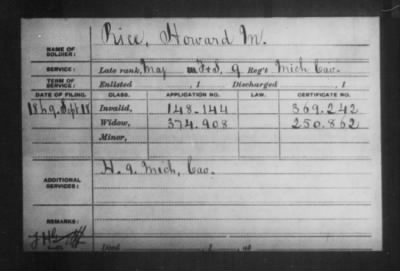 NAME OF SOLDIER: Price, Howard M.
SERVICE: Late rank, Maj F&S, 9 Reg't Mich Cav.
TERM OF SERVICE: Enlisted , 1 Discharged , 1
DATE OF FILING. CLASS. APPLICATION NO. LAW. CERTIFICATE NO.
Sept 11 Invalid, 148.144 369.242
Widow, 374.908 250.862
Minor,
ADDITIONAL SERVICES: H. 9. Mich, Cav.
REMARKS:
Died , 1 , at